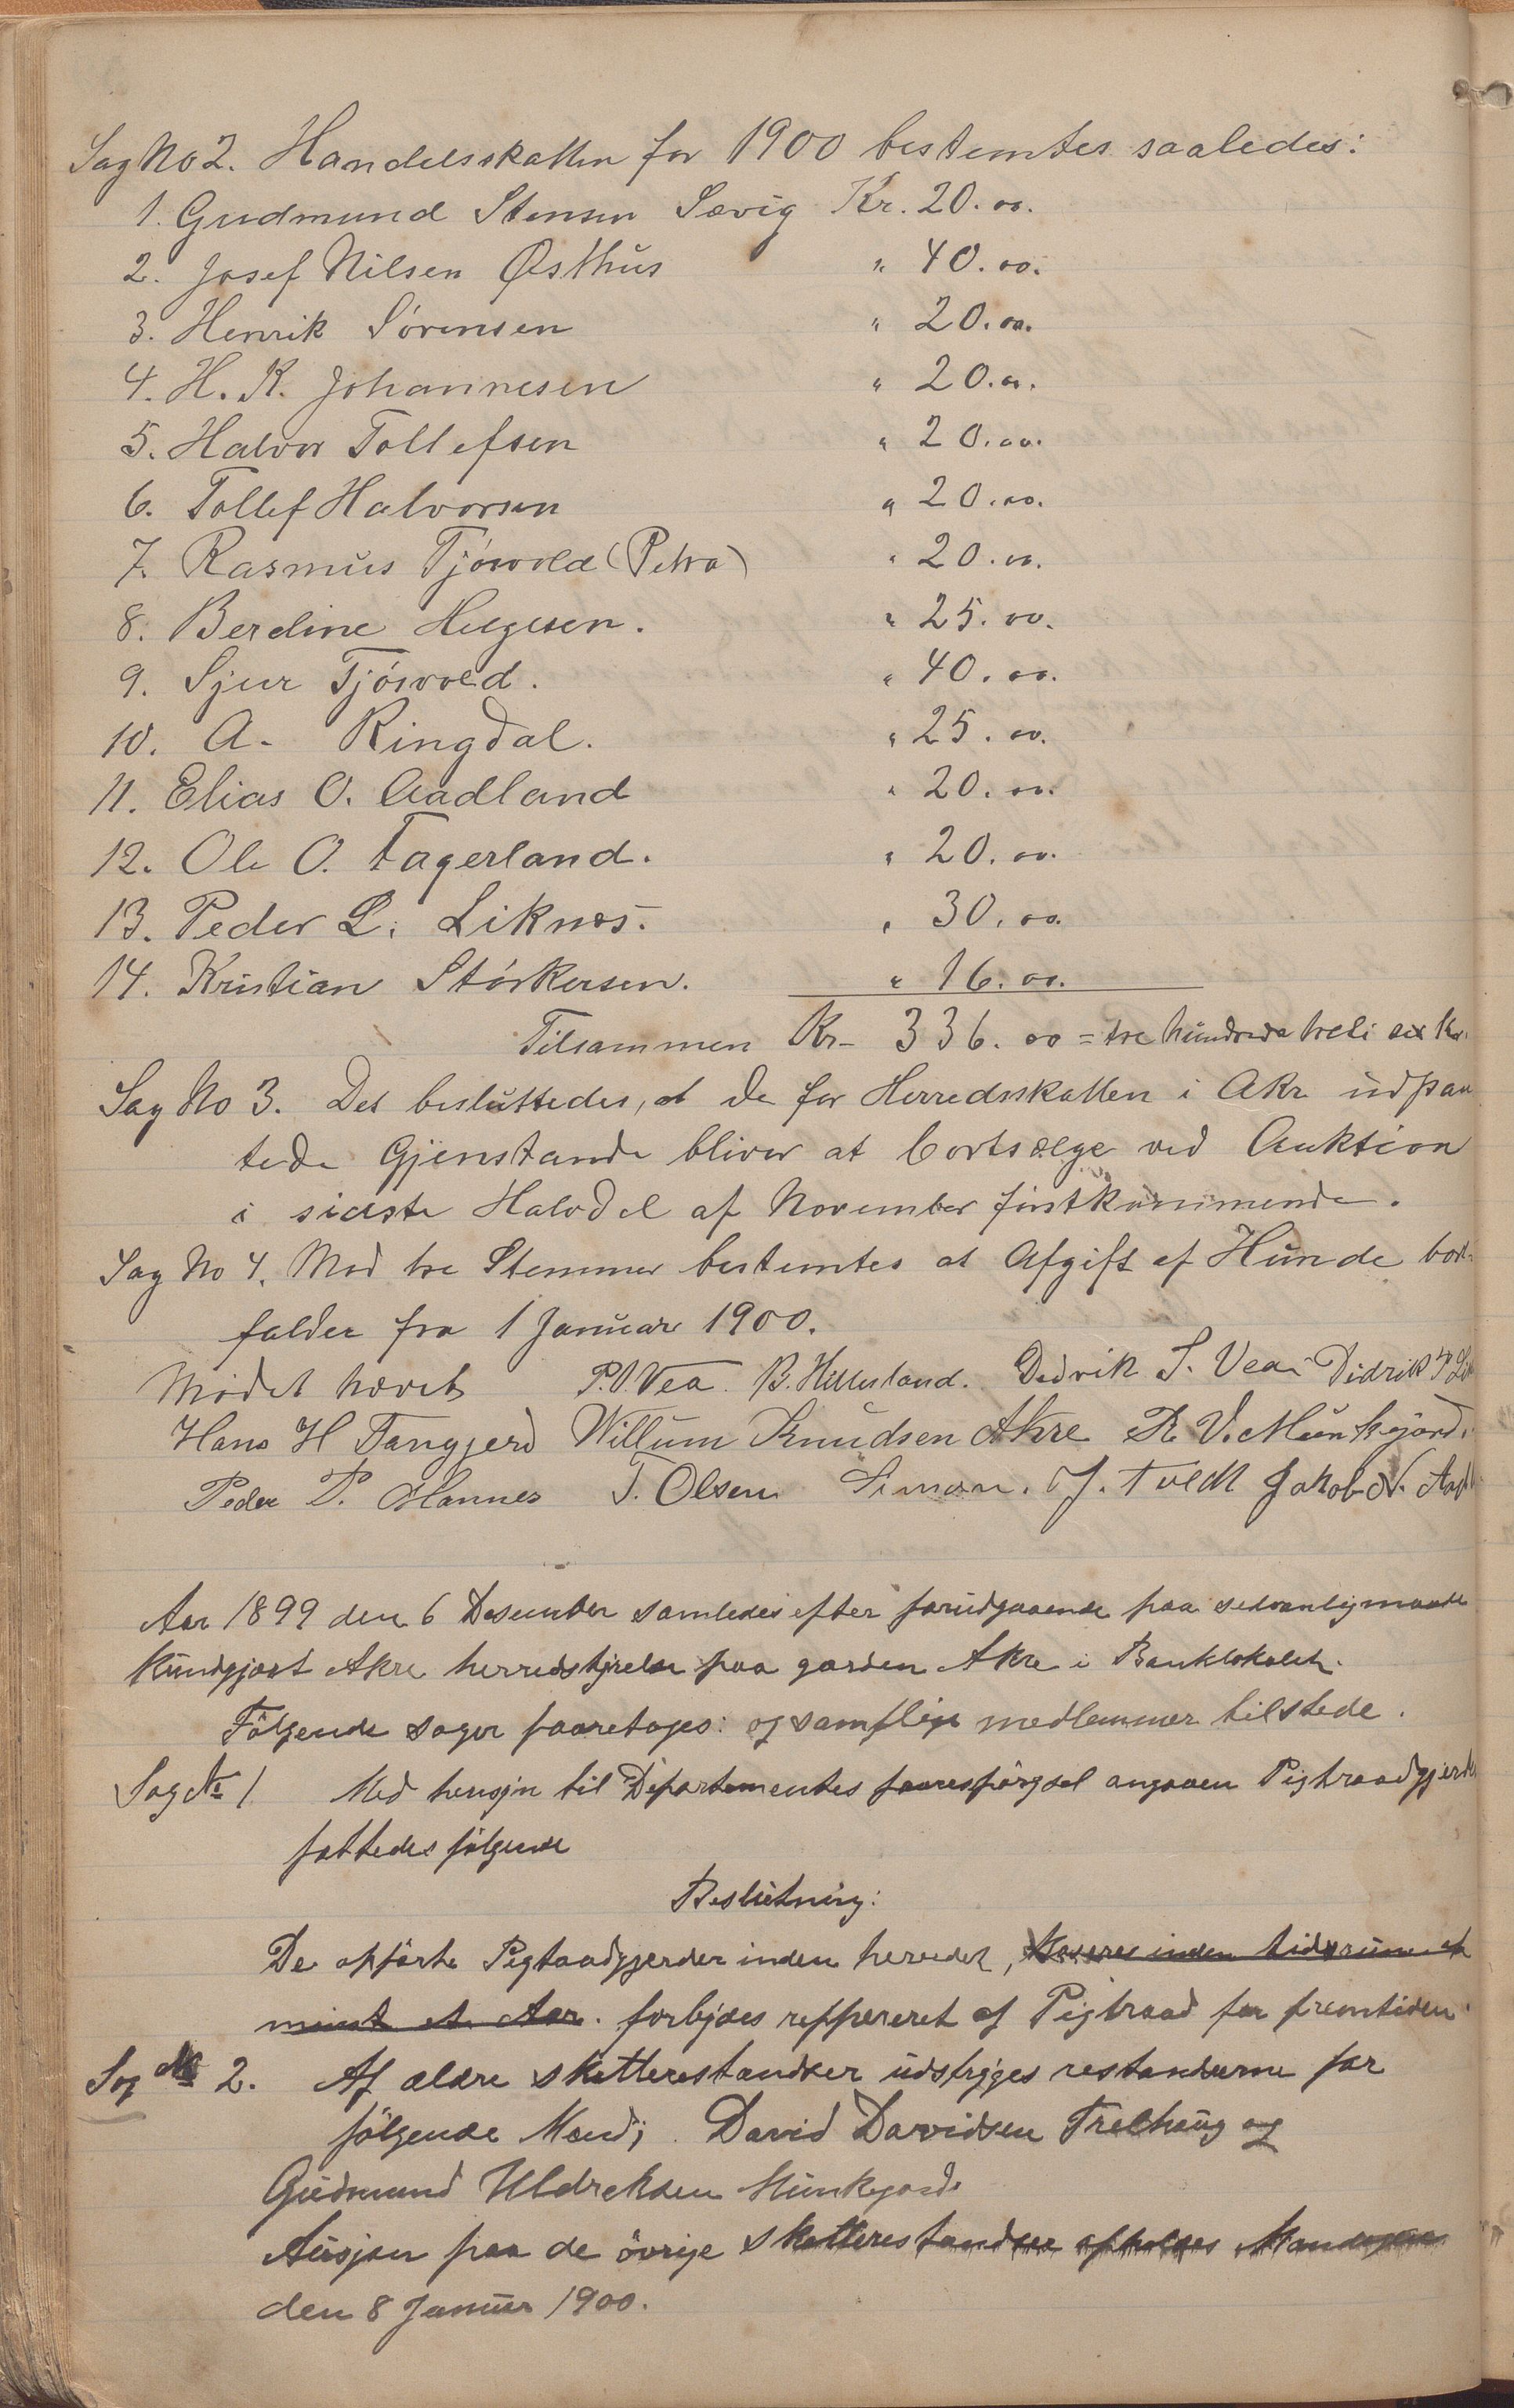 Sag No 2. Handelsskatten for 1900 bestemtes saaledes:
1. Gudmund Stensen Sævig Kr. 20.00.
2. Josef Nilsen Østhus " 40.00.
3. Henrik Sörensen " 20.00.
4. H. K. Johannesen " 20.00.
5. Halvor Tollefsen " 20.00.
6. Tollef Halvorsen " 20.00.
7. Rasmus Tjösvold (Petra) " 20.00.
8. Berdine Helgesen. " 25.00.
9. Sjur Tjösvold. " 40.00.
10. A. Ringdal. " 25.00.
11. Elias O. Aadland " 20.00.
12. Ole O. Fagerland. " 20.00.
13. Peder L. Liknes. " 30.00.
14. Kristian Störkersen. " 16.00.
Tilsammen Kr- 336.00 = tre hundrede treti sex Kr.
Sag No 3. Det besluttedes, at de for Herredsskatten i Akre udpan
tede Gjenstande bliver at bortsælge ved Auktion
i sidste Halvdel af November förstkommende.
Sag No 4. Mod tre Stemmer bestemtes at Afgift af Hunde bort
falder fra 1 Januar 1900.
Mödet hævet P.O. Vea. B. Hillesland. Dedrik S. Vea Didrik
Hans H Tangjerd Willum Knudsen Akre R. V. Munkejord.
Peder P. Hannes T. Olsen Simon. J. Tveit Jakob N.
Aar 1899 den 6 Desember samledes efter forudgaaende paa sedvanlig maade
kundgjort Akre herredstyrelse paa garden Akre i Banklokalet.
Fölgende sager foaretages: og samflige medlemmer tilstede.
Sag № 1 Med hensyn til Departementes foarespörgsel angaaen Pigtraadgjerder
fattedes fölgende
Beslutning:
De opförte Pigtaadgjerder inden herredet, inden tidsrum et
minst et Aar. forbydes reppereret af Pigtraad for fremtiden.
Sag № 2. Af ældre skatterestandser udstryges restandserne for
fölgende Mænd; David Davidsen Trelhaug og
Gudmund Uldreksen Munkejord.
Ausjon paa de övrige skatterestandser afholdes Mandagen
den 8 Januar 1900.